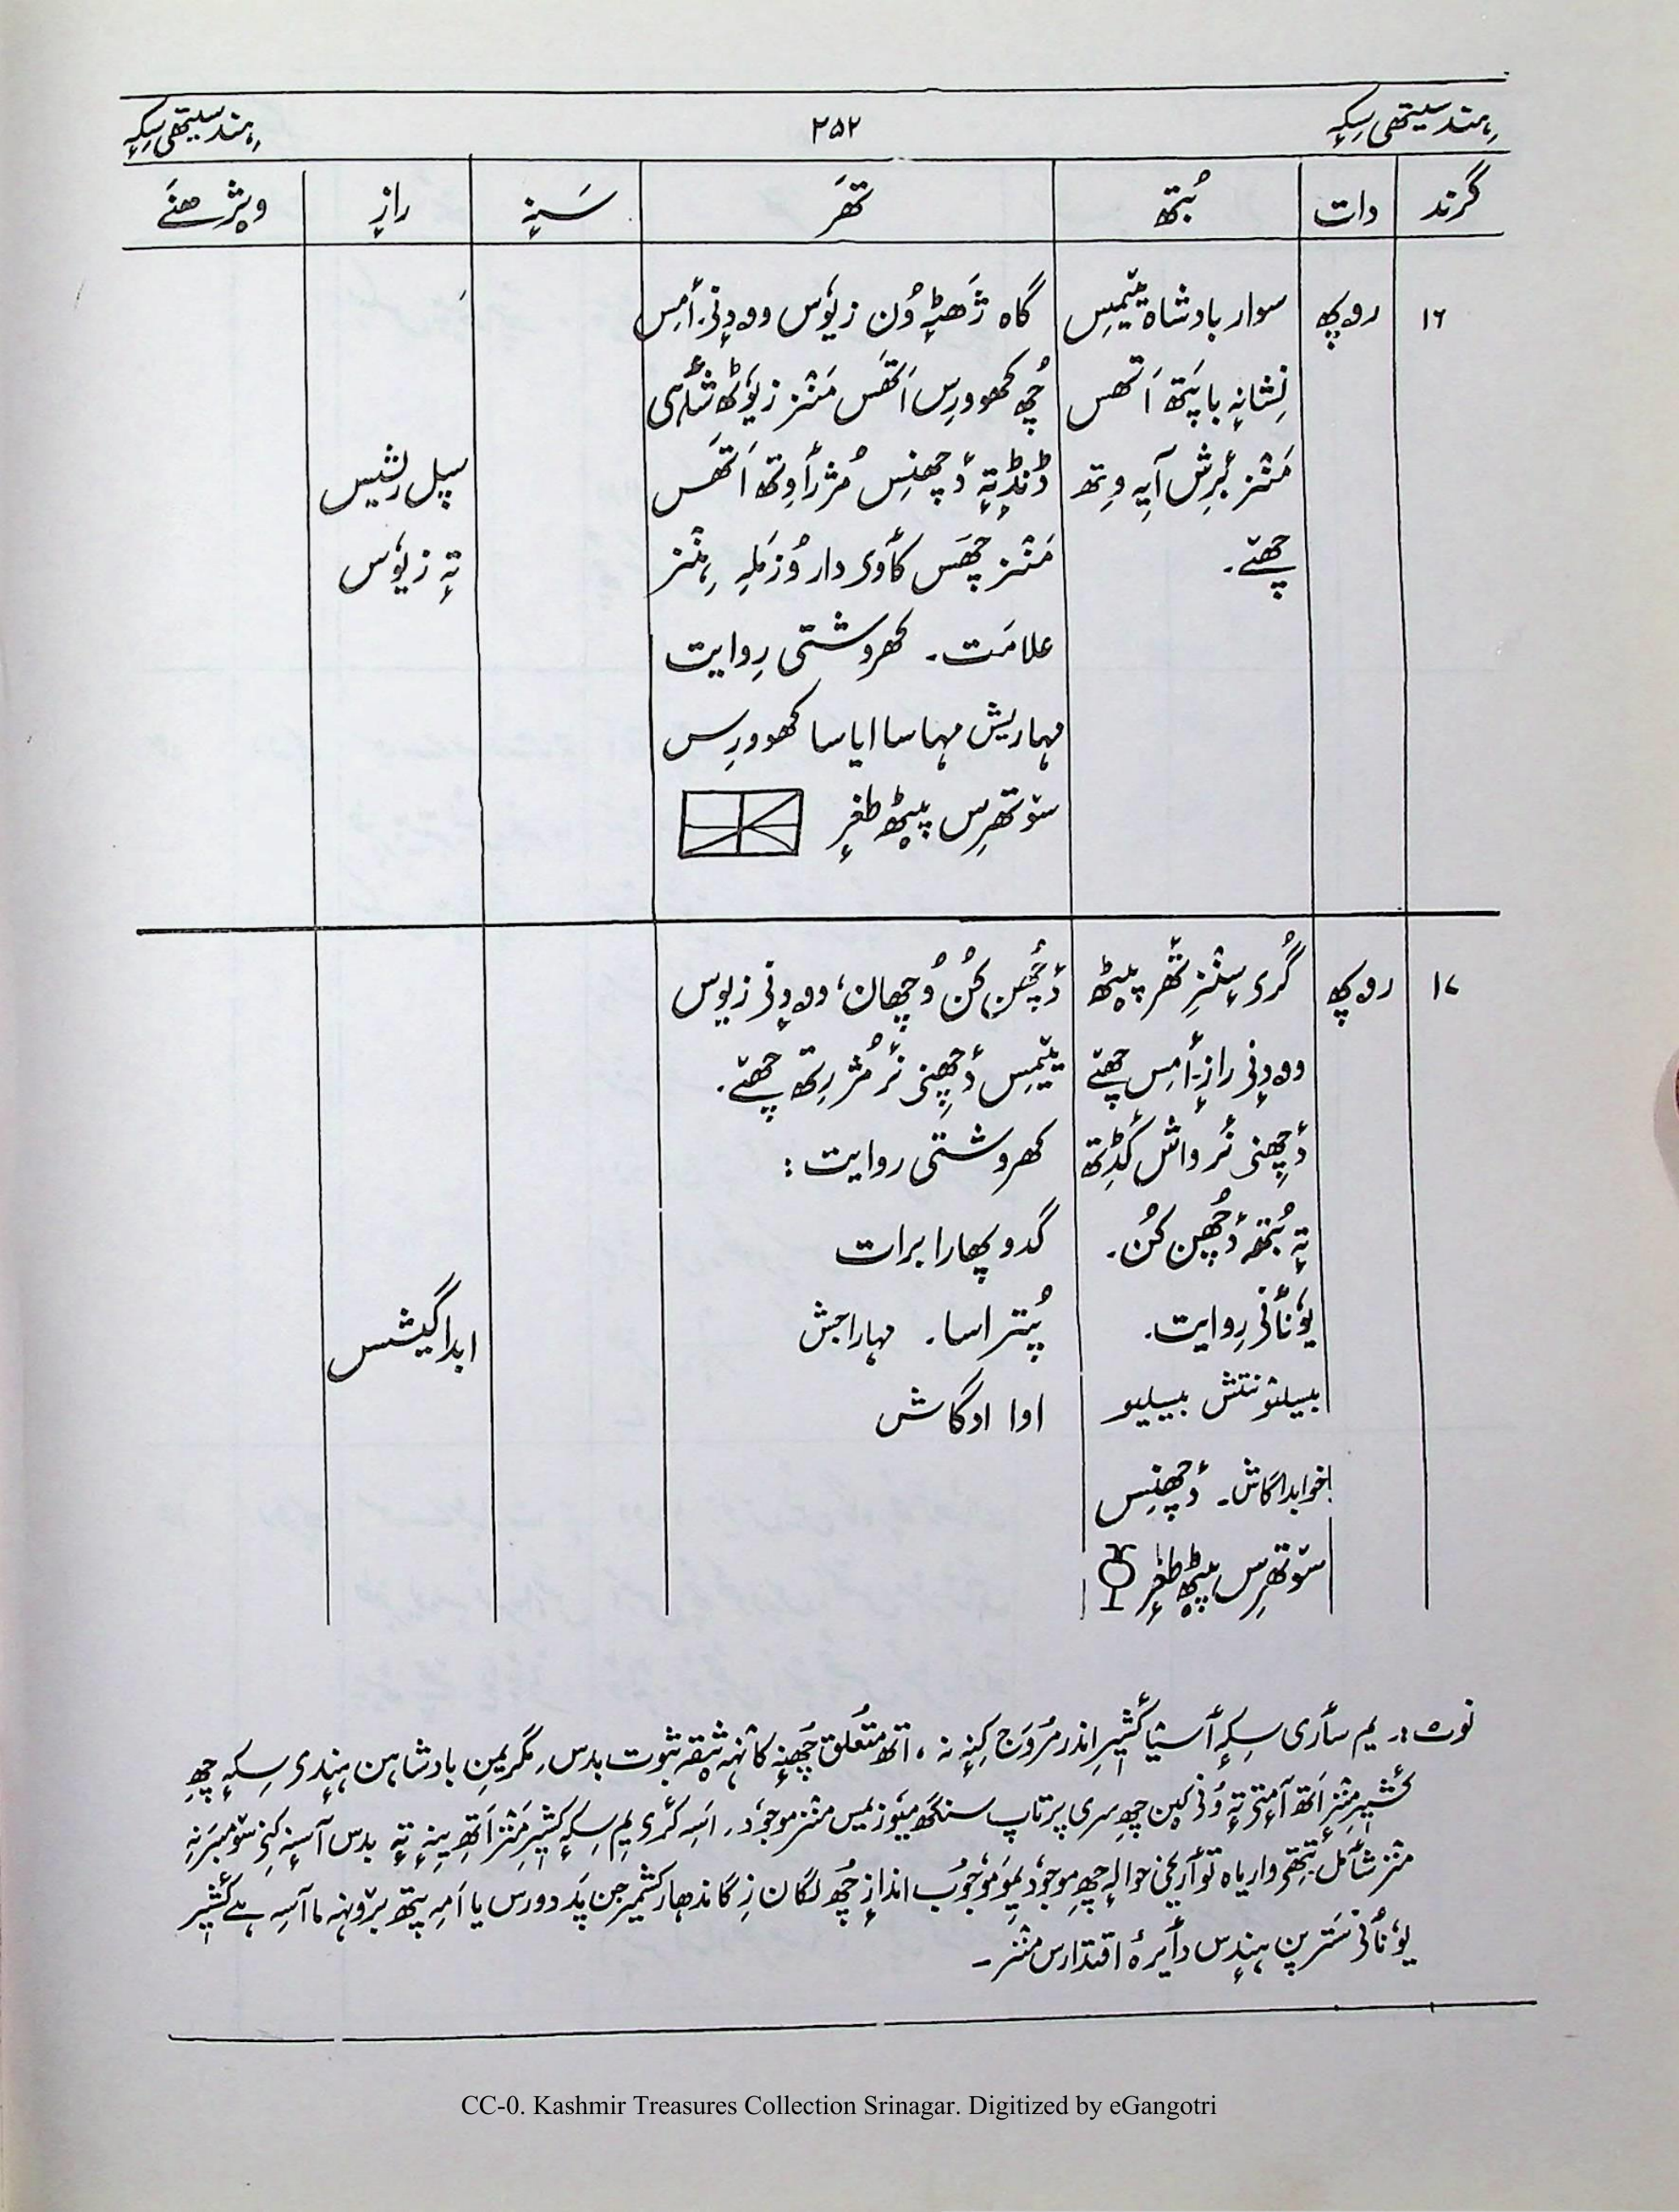 ہِند سیتھی سِکہٕ ۲۵۲ ہِند سیتھی سِکہٕ
گرٛند دات بُتھ تھَر سَنہٕ رازٕ ویژھنَے
۱۶ روپھ
سوار بادشاہ یَتِمیس
نِشانہٕ باپَتھ اَتھس
مَنٛز بُرِش آیہِ وِتھ
چھےٚ۔
گاہ ژَھٹہٕ وُن زیوٗس وودٕنۍ۔ أمِس
چُھ کھوورِس اَتھَس مَنٛز زیوٗٹھ شأہی
ڈَنٛڈ تہٕ دٔچھنِس مُژرأوِتھ اَتھَس
مَنٛز چَھس کأوۍ دار وُزمَلہِ ہِنٛز
علامَت۔ کھروشتی رِوایت
مہاریش مہاسا ایاسا کھوورِس
سۆتھرِس پیٹھ طغرٕ
سپل رِشیس
تہٕ زیوٗس
۱۷ روپھ
گُرۍ سٕنٛزِ تھَر پیٹھ
وودٕنۍ رازٕ۔ أمِس چھےٚ
دٔچھِنۍ نٔر واش کٔڈِتھ
تہٕ بُتھہٕ دٔچھُن کُن۔
یوٗنأنۍ رِوایت۔
بیسلیونتش بیسلیو
اخوابداگاش۔ دٔچھنِس
سۆتھرِس پیٹھ طغرٕ
دٔچھُن کُن وُچھان، وودٕنۍ زیوٗس
یَتِمیس دٔچھِنۍ نٔر مُژرِتھ چھےٚ۔
کھروشتی روایت:
گدوپھارا برات
پُتراسا۔ مہاراجش
اوا ادگاش
ابداگیشس
نوٹ:۔ یِم سأری سِکہٕ أسۍیا کٔشیٖرِ اندر مُروَج کِنہٕ نہ، اتھ متعلق چُھنہٕ کانٛہہ ثِقہٕ ثبوت بدس۔ مگر یِمن بادشاہن ہِنٛدۍ سِکہٕ چِھ
کٔشیٖرِ مَنٛز اَتھہٕ آمٕتۍ تہٕ وُنۍ کین چِھ سری پرتاپ سنگھ میوٗزیمس مَنٛز موجوٗد۔ اسہِ کٔرۍ یِم سِکہٕ کٔشیٖرِ مَنٛز اَتھہِ یِنہٕ تہٕ بدس آسنہٕ کِنۍ سۆمبرَنہِ
مَنٛز شأمِل۔ یُتھے واریاہ توأریٖخی حوالہٕ چِھ موجوٗد یِموٚ موٗجوٗب اندازٕ چُھ لگان زِ گاندھار کشمیر جن پَد دورس یا اَمہِ پتھ برٛونٛہہ ما آسہِ ہے کٔشیٖر
یوٗنأنۍ سَترپن ہِنٛدِس دأیرٔہ اقتدارس مَنٛز۔
CC-0. Kashmir Treasures Collection Srinagar. Digitized by eGangotri